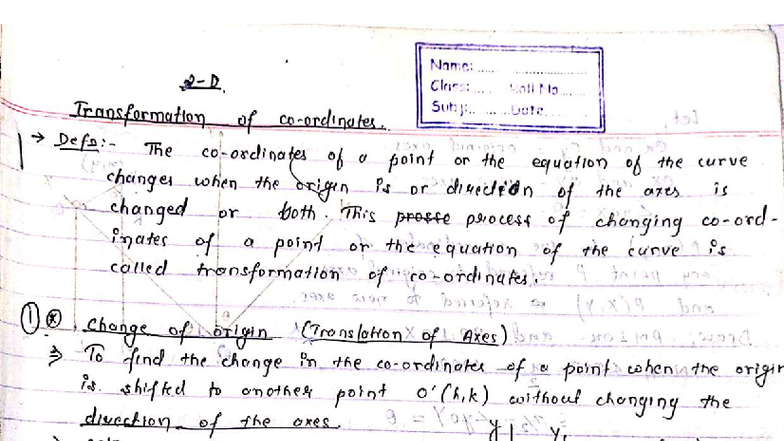 2-D.
Name: ......
Class: ..... Roll No. ......
Subj: ...... Date ......
Transformation of co-ordinates.
→ Defn:- The co-ordinates of a point or the equation of the curve
changes when the origin is or direction of the axes is
changed or both. This prosse process of changing co-ord-
inates of a point or the equation of the curve is
called transformation of co-ordinates.
① * change of origin (Translation of Axes)
⇒ To find the change in the co-ordinates of a point when the origin
is shifted to another point o'(h,k) without changing the
direction of the axes.
y y,